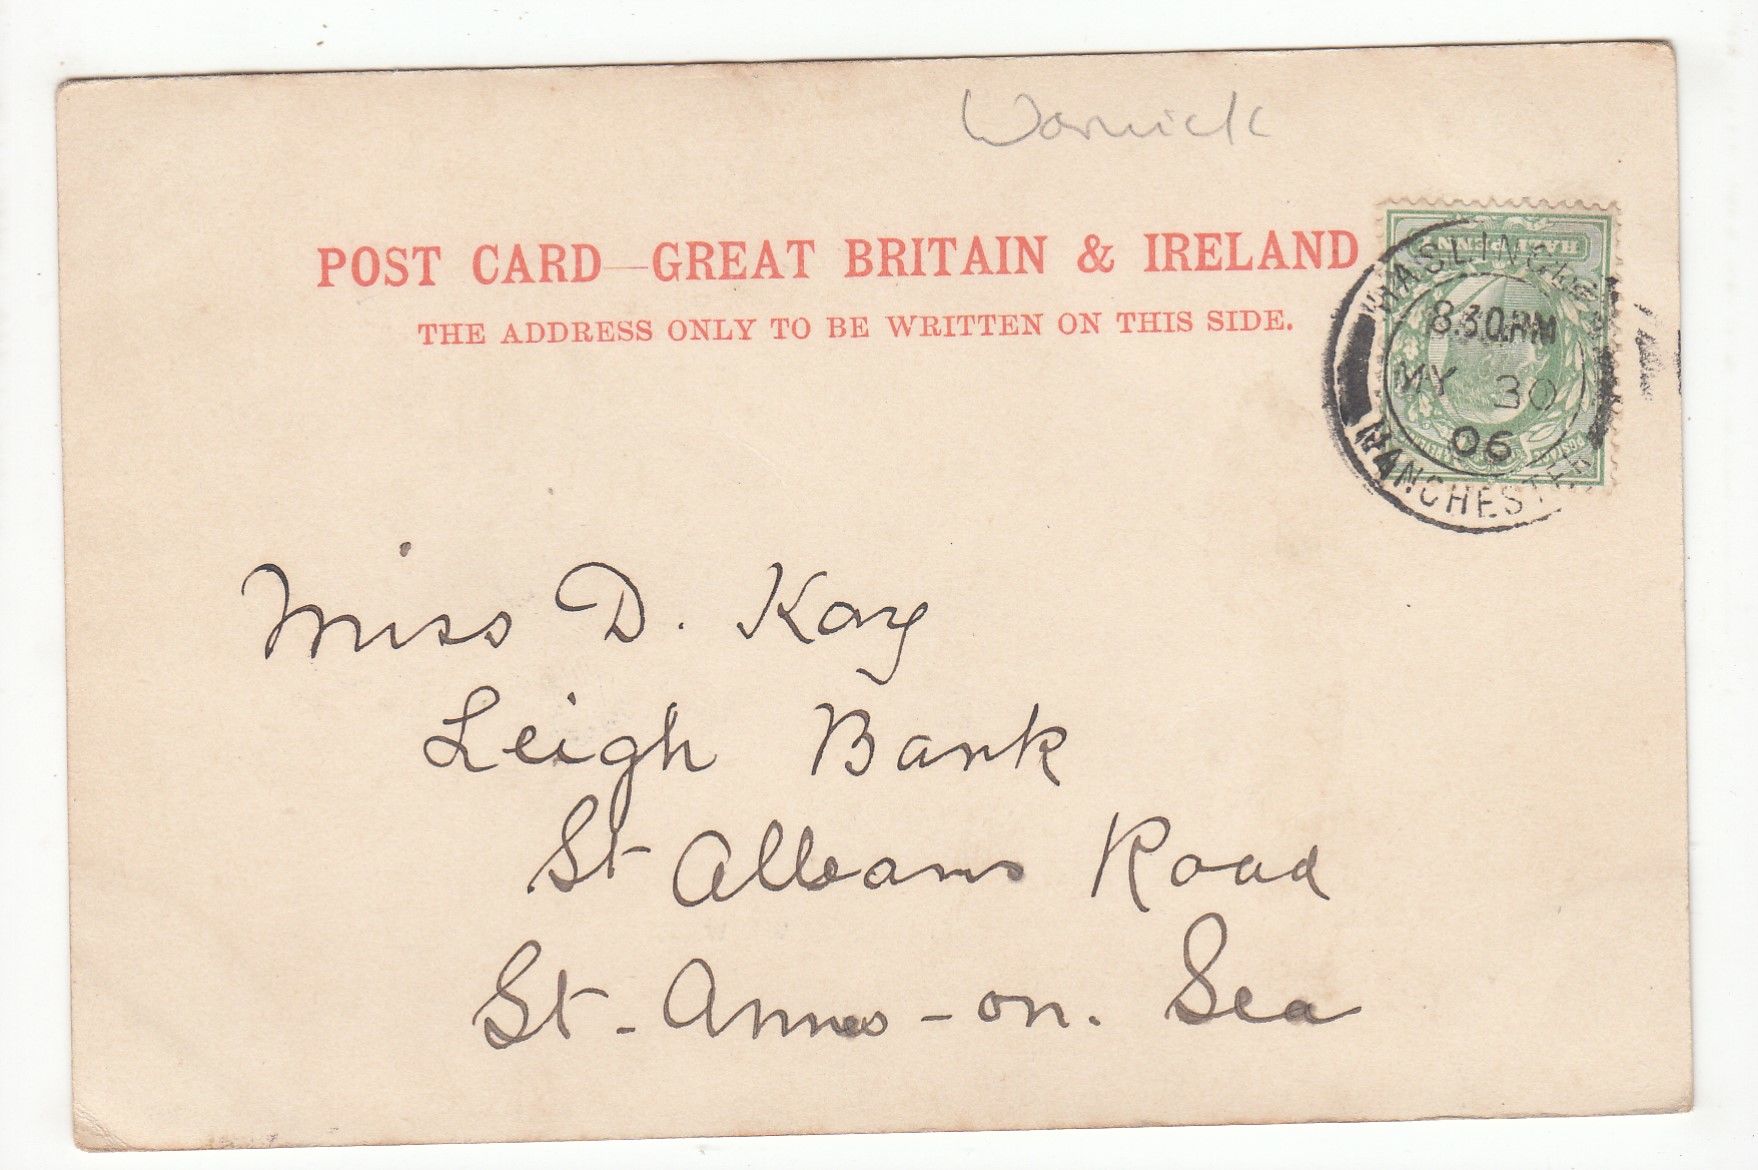 Warwick
POST CARD—GREAT BRITAIN & IRELAND
THE ADDRESS ONLY TO BE WRITTEN ON THIS SIDE.
HALFPENNY
8.30 PM
MY 30
06
MANCHESTER
Miss D. Kay
Leigh Bank
St Albans Road
St - Annes - on. Sea